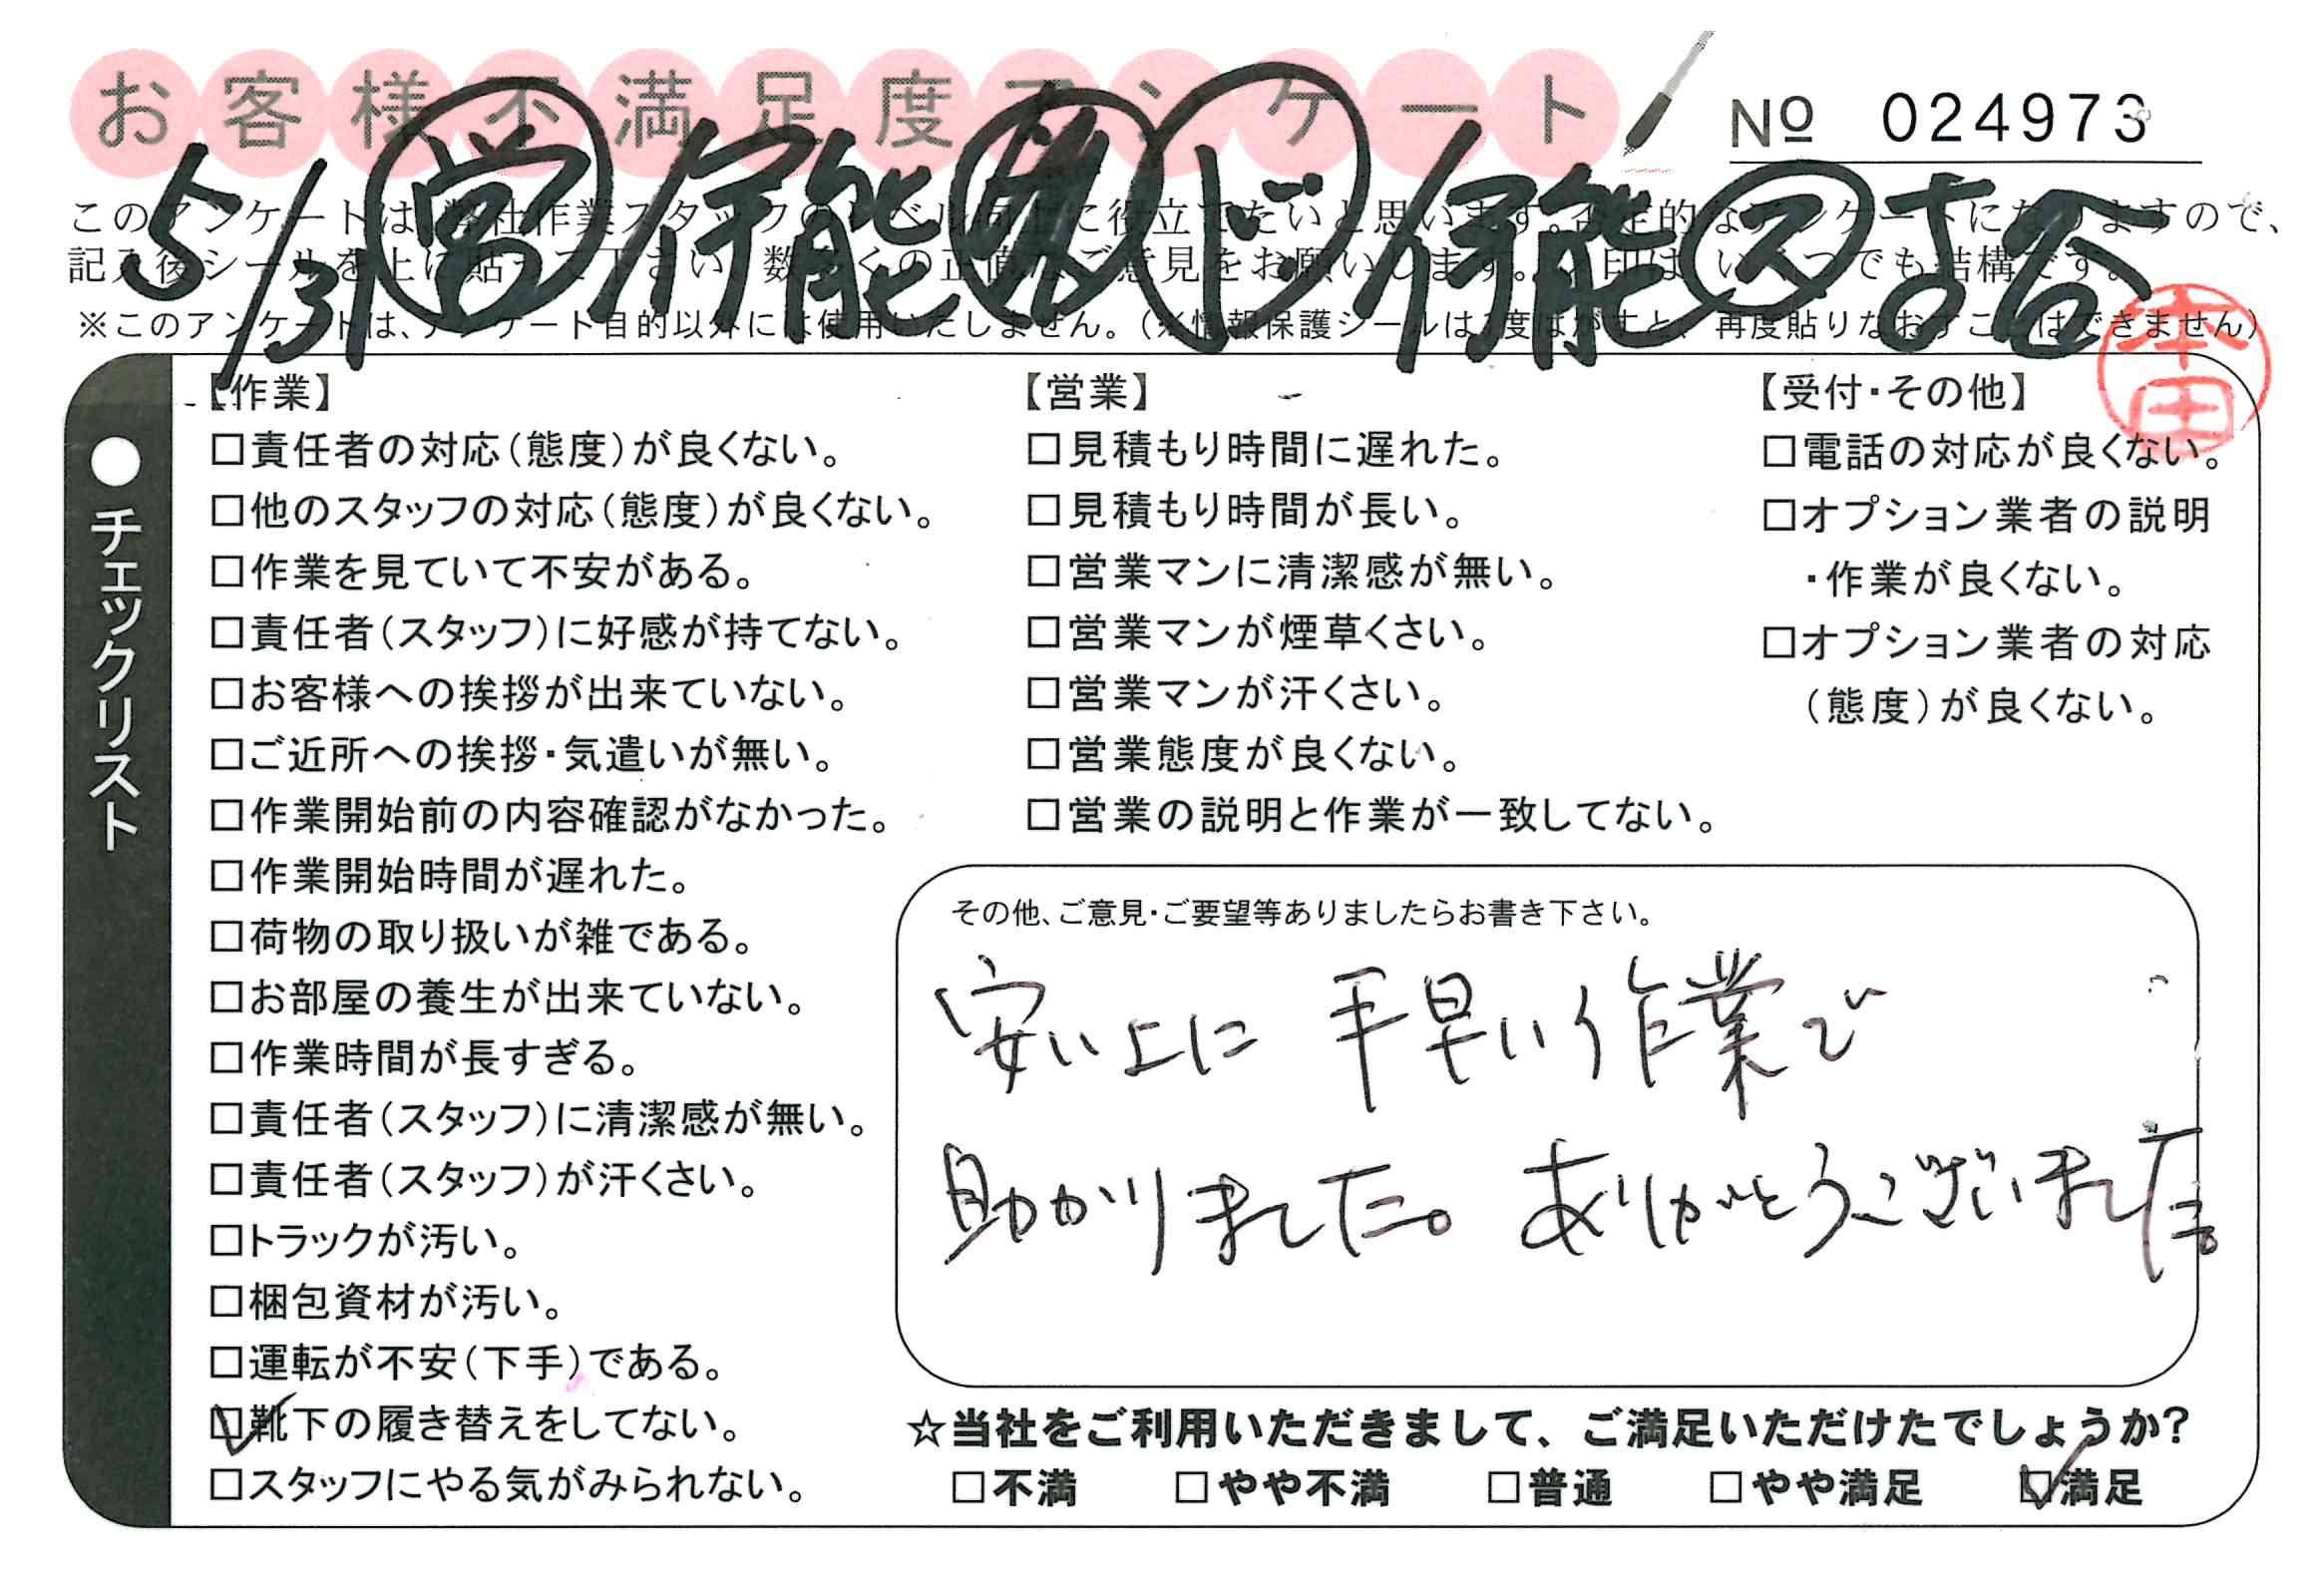 お客様不満足度アンケート
№ 024973
5/31 営 伊能 見 ド 伊能 ス 古谷
このアンケートは、弊社作業スタッフのレベル向上に役立てたいと思います。否定的なアンケートになりますので、
記入後シールを上に貼って下さい。数多くの正直なご意見をお願いします。レ印は、いくつでも結構です。
※このアンケートは、アンケート目的以外には使用いたしません。(※情報保護シールは1度はがすと、再度貼りなおすことはできません)
本田
●チェックリスト
【作業】
□責任者の対応(態度)が良くない。
□他のスタッフの対応(態度)が良くない。
□作業を見ていて不安がある。
□責任者(スタッフ)に好感が持てない。
□お客様への挨拶が出来ていない。
□ご近所への挨拶・気遣いが無い。
□作業開始前の内容確認がなかった。
□作業開始時間が遅れた。
□荷物の取り扱いが雑である。
□お部屋の養生が出来ていない。
□作業時間が長すぎる。
□責任者(スタッフ)に清潔感が無い。
□責任者(スタッフ)が汗くさい。
□トラックが汚い。
□梱包資材が汚い。
□運転が不安(下手)である。
☑靴下の履き替えをしてない。
□スタッフにやる気がみられない。
【営業】
□見積もり時間に遅れた。
□見積もり時間が長い。
□営業マンに清潔感が無い。
□営業マンが煙草くさい。
□営業マンが汗くさい。
□営業態度が良くない。
□営業の説明と作業が一致してない。
【受付・その他】
□電話の対応が良くない。
□オプション業者の説明
・作業が良くない。
□オプション業者の対応
(態度)が良くない。
その他、ご意見・ご要望等ありましたらお書き下さい。
安い上に 手早い作業で
助かりました。ありがとうございました。
☆当社をご利用いただきまして、ご満足いただけたでしょうか?
□不満 □やや不満 □普通 □やや満足 ☑満足